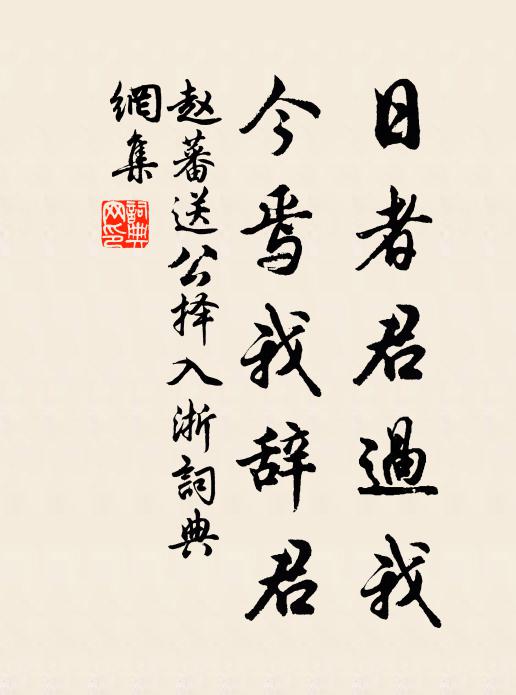 日者君過我
今焉我辞君
赵蕃送公择入浙詞典
網集
詞典网印